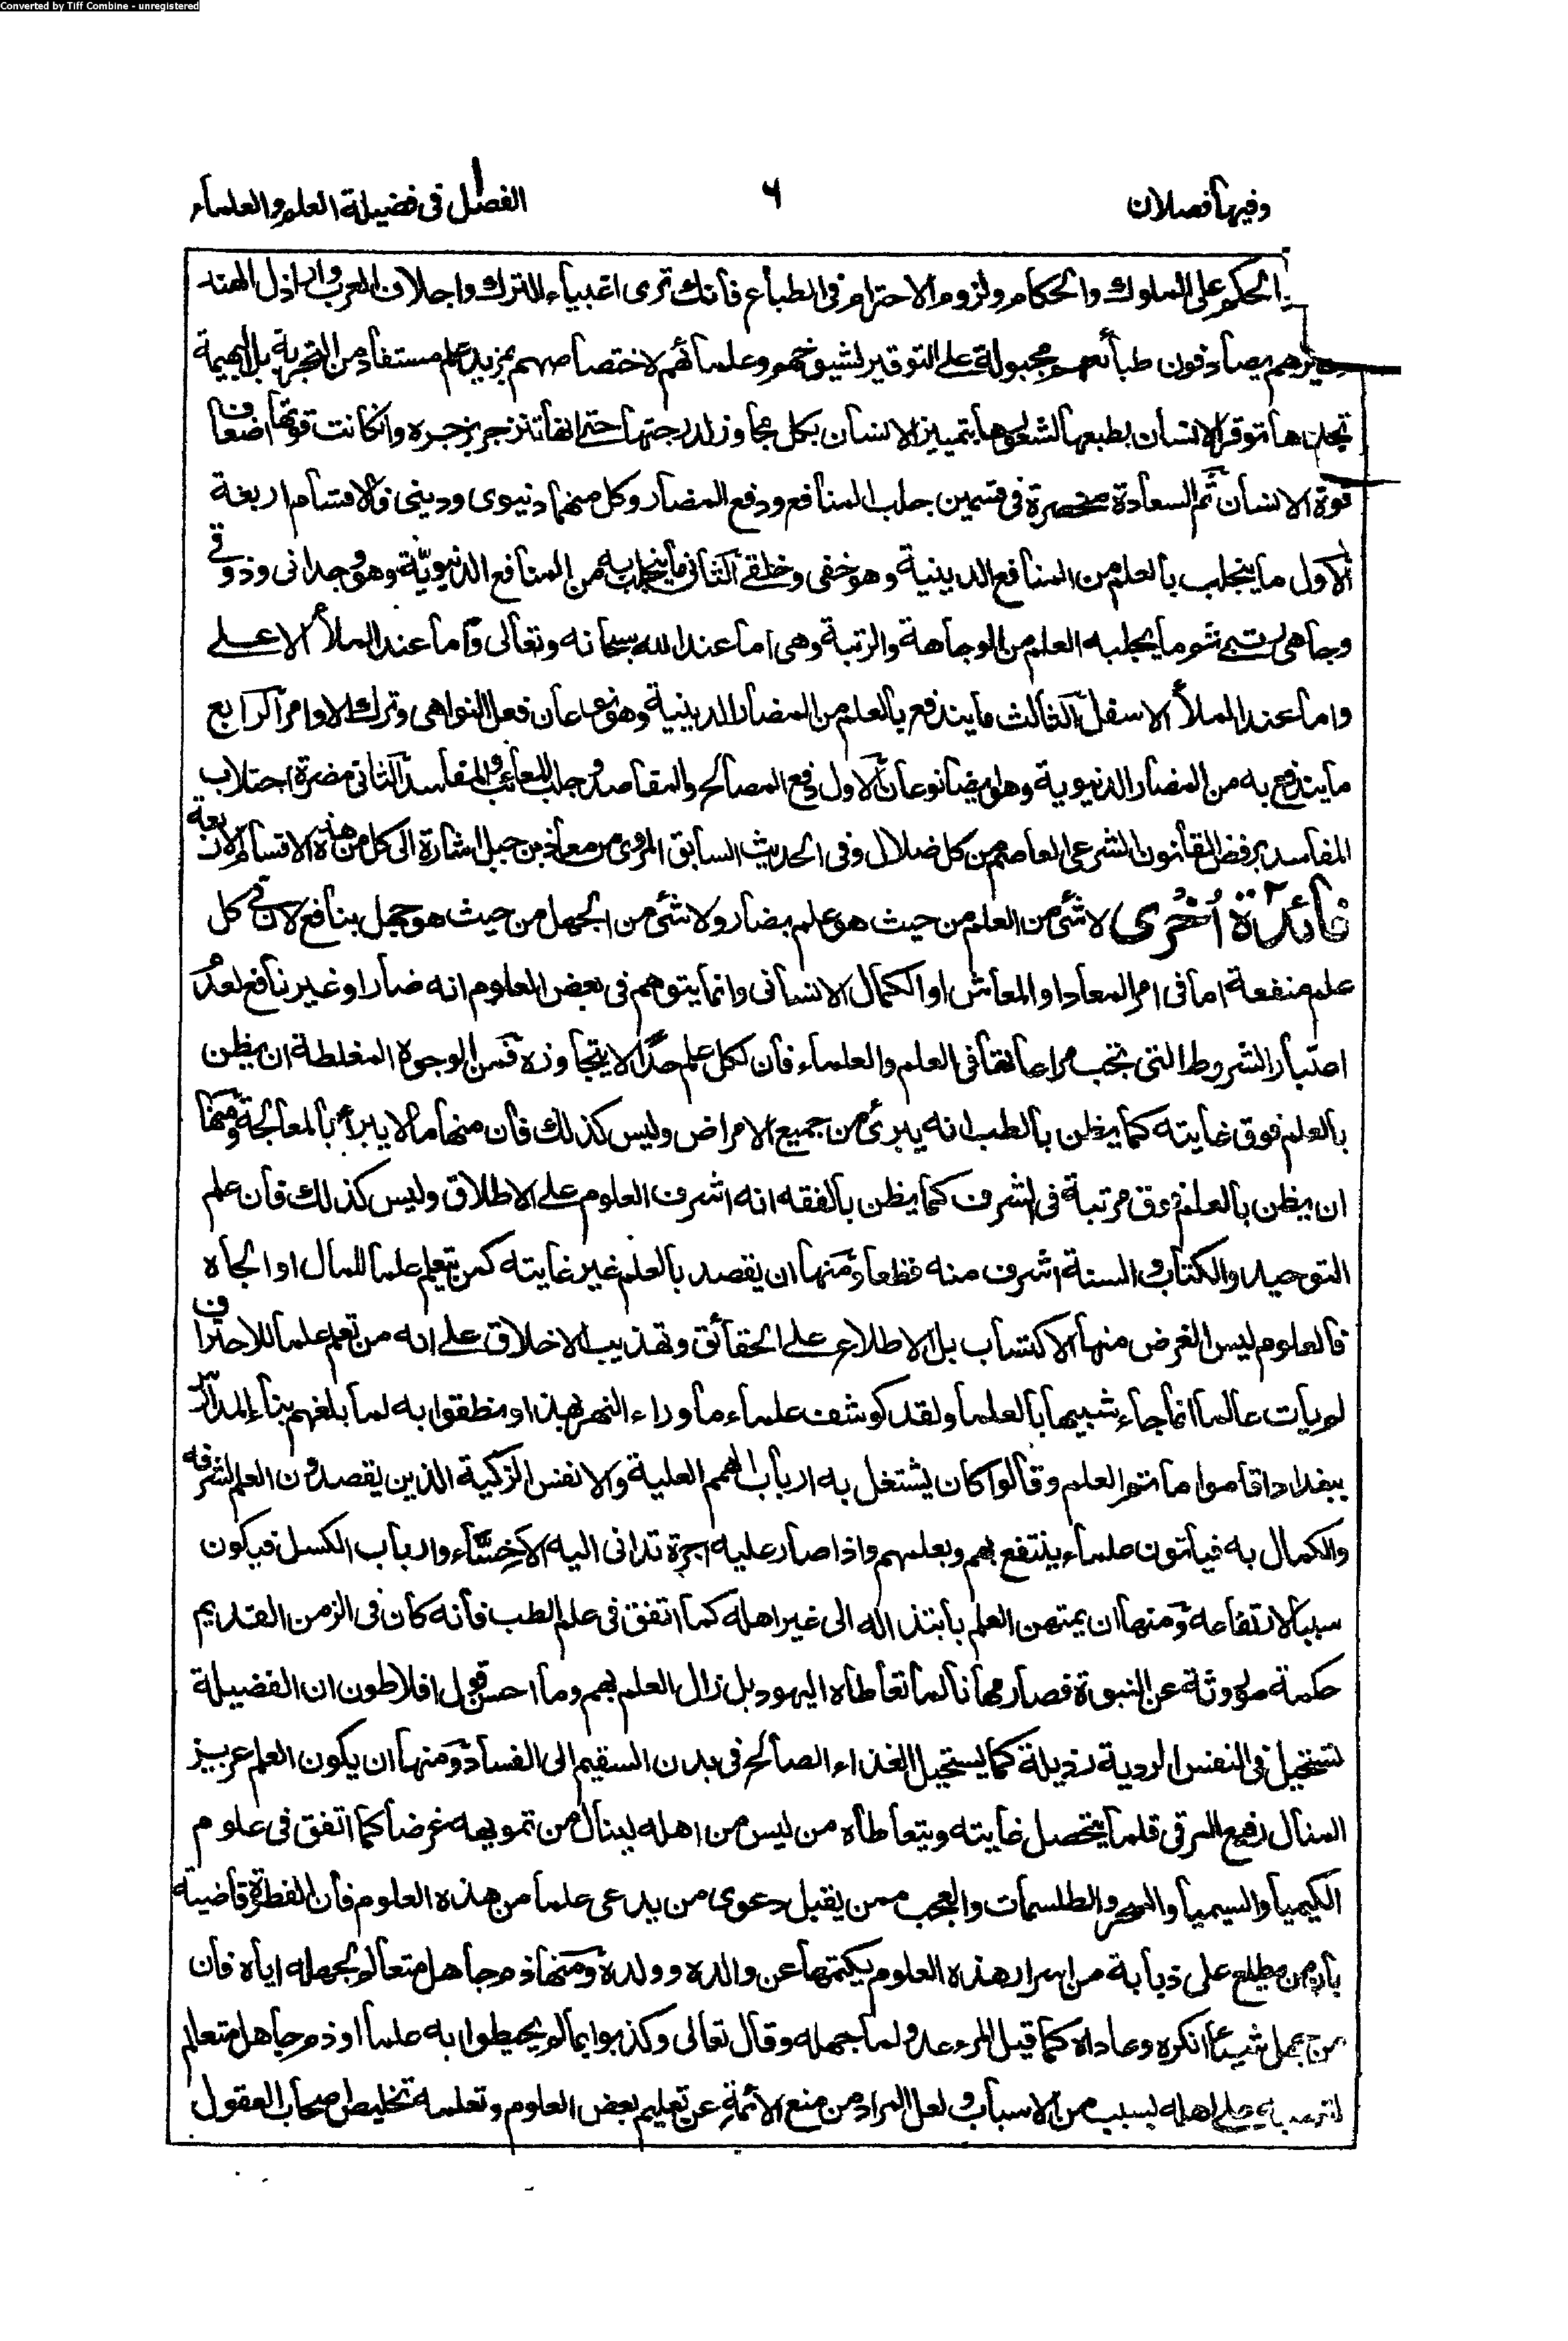 Converted by Tiff Combine - unregistered
وفيها فصلان
٦
الفصل ١ فى فضيلة العلم والعلماء
الحكم على الملوك والحكام ولزوم الاحترام فى الطباع فانك ترى اغبياء الترك واجلاف العرب واراذل الهند
وغيرهم يصادفون طبائعهم مجبولة على التوقير لشيوخهم وعلمائهم لاختصاصهم بمزيد علم مستفاد من التجربة بل البهيمة
تجدها توقر الانسان بطبعها لشعورها بتمييز الانسان بكمال مجاوز لدرجتها حتى انها تنزجر بزجره وان كانت قوتها اضعاف
قوة الانسان ثم السعادة منحصرة فى قسمين جلب المنافع ودفع المضار وكل منهما دنيوى ودينى فالاقسام اربعة
الاول ما ينجلب بالعلم من المنافع الدينية وهو خفى وخلقى الثانى ما ينجلب به من المنافع الدنيوية وهو وجدانى وذوقى
وجاهى رتبى وما يجلبه العلم من الوجاهة والرتبة وهى اما عند الله سبحانه وتعالى واما عند الملأ الاعلى
واما عند الملأ الاسفل الثالث ما يندفع بالعلم من المضار الدينية وهو نوعان فعل النواهى وترك الاوامر الرابع
ما يندفع به من المضار الدنيوية وهو ايضا نوعان الاول رفع المصالح والمقاصد وجلب المعائب والمفاسد الثانى مضرة اجتلاب
المفاسد برفض القانون الشرعى العاصم من كل ضلال وفى الحديث السابق المروى من معاذ بن جبل اشارة الى كل من هذه الاقسام الاربعة
فائدة اخرى لا شئ من العلم من حيث هو علم بضار ولا شئ من الجهل من حيث هو جهل بنافع لان فى كل
علم منفعة اما فى امر المعاد او المعاش او الكمال الانسانى وانما يتوهم فى بعض العلوم انه ضار او غير نافع لعدم
اعتبار الشروط التى تجب مراعاتها فى العلم والعلماء فان لكل علم حدا لا يتجاوزه فمن الوجوه المغلطة ان يظن
بالعلم فوق غايته كما يظن بالطب انه يبرئ من جميع الامراض وليس كذلك فان منها ما لا يبرأ بالمعالجة ومنها
ان يظن بالعلم فوق مرتبة فى الشرف كما يظن بالفقه انه اشرف العلوم على الاطلاق وليس كذلك فان علم
التوحيد والكتاب والسنة اشرف منه قطعا ومنها ان يقصد بالعلم غير غايته كمن يتعلم علما للمال او الجاه
فالعلوم ليس الغرض منها الاكتساب بل الاطلاع على الحقائق وتهذيب الاخلاق على انه من تعلم علما للاحتراف
لم يأت عالما انما جاء شبيها بالعلما ولقد كوشف علماء ما وراء النهر بهذا ونطقوا به لما بلغهم بناء المدارس
ببغداد اقاموا ماتم العلم وقالوا كان يشتغل به ارباب الهمم العلية والانفس الزكية الذين يقصدون العلم لشرفه
والكمال به فيأتون علماء ينتفع بهم وبعلمهم واذا صار عليه اجرة تدانى اليه الاخساء وارباب الكسل فيكون
سببا لارتفاعه ومنها ان يمتهن العلم بابتذاله الى غير اهله كما اتفق فى علم الطب فانه كان فى الزمن القديم
حكمة موروثة عن النبوة فصار مهانا لما تعاطاه اليهود بل زال العلم بهم وما احسن قول افلاطون ان الفضيلة
تستحيل فى النفس الردية رذيلة كما يستحيل الغذاء الصالح فى بدن السقيم الى الفساد ومنها ان يكون العلم عزيز
المنال رفيع المرقى قلما يتحصل غايته ويتعاطاه من ليس من اهله لينال من تمويهه غرضا كما اتفق فى علوم
الكيميا والسيميا والسحر والطلسمات والعجب ممن يقبل دعوى من يدعى علما من هذه العلوم فان الفطرة قاضية
بان من يطلع على ذبابة من اسرار هذه العلوم يكتمها عن والده وولده ومنها ذم جاهل متعالم لجهله اياه فان
من جهل شيئا انكره وعاداه كما قيل المرء عدو لما جهله وقال تعالى وكذبوا بما لم يحيطوا به علما او ذم جاهل متعالم
لتعصبه على اهله لسبب من الاسباب ولعل المراد من منع الائمة عن تعليم بعض العلوم وتعلمه تخليص اصحاب العقول